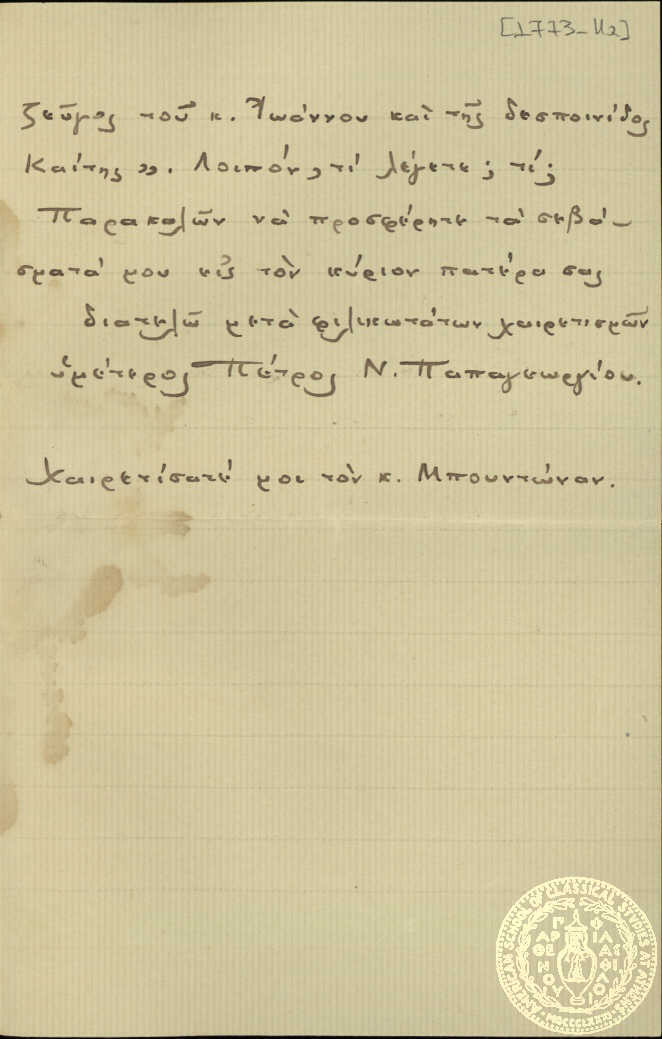 [1773-112]
ζεῦγος τοῦ κ. Ἰωάννου καὶ τῆς δεσποινίδος
Καίτης ». Λοιπόν, τί λέγετε; τί;
Παρακαλῶν νὰ προσφέρητε τὰ σεβά-
σματά μου εἰς τὸν κύριον πατέρα σας
διατελῶ μετὰ φιλικωτάτων χαιρετισμῶν
ὑμέτερος Πέτρος Ν. Παπαγεωργίου.
Χαιρετίσατέ μοι τὸν κ. Μπουντώναν.
AMERICAN SCHOOL OF CLASSICAL STUDIES AT ATHENS
MDCCCLXXXI